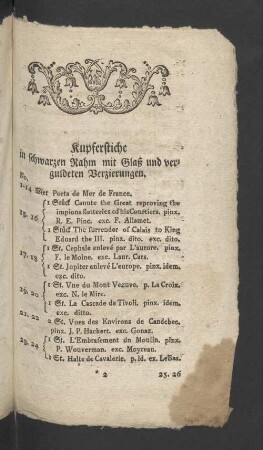 Kupferstiche
in schwarzen Rahm mit Glaß und ver-
guldeten Verzierungen.
No.
1-14 Vier Ports de Mer de France.
15. 16 { 1 Stück Canute the Great reproving the
impious flatteries of his Courtiers. pinx.
R. E. Pine. exc. F. Allamet.
1 Stück The surrender of Calais to King
Eduard the III. pinx. dito. exc. dito.
17. 18 { 1 St. Cephale enlevé par L'aurore. pinx.
F. le Moine. exc. Laur. Cars.
1 St. Jupiter enlevé L'europe. pinx. idem.
exc. dito.
19. 20 { 1 St. Vue du Mont Vesuve. p. La Croix.
exc. N. le Mire.
1 St. La Cascade de Tivoli. pinx. idem.
exc. ditto.
21. 22 2 St. Vues des Environs de Candebec.
pinx. J. P. Hackert. exc. Gonaz.
23. 24 { 1 St. L'Embrasement du Moulin. pinx.
P. Wouverman. exc. Moyreau.
1 St. Halte de Cavalerie. p. id. ex. LeBas.
* 2 25. 26